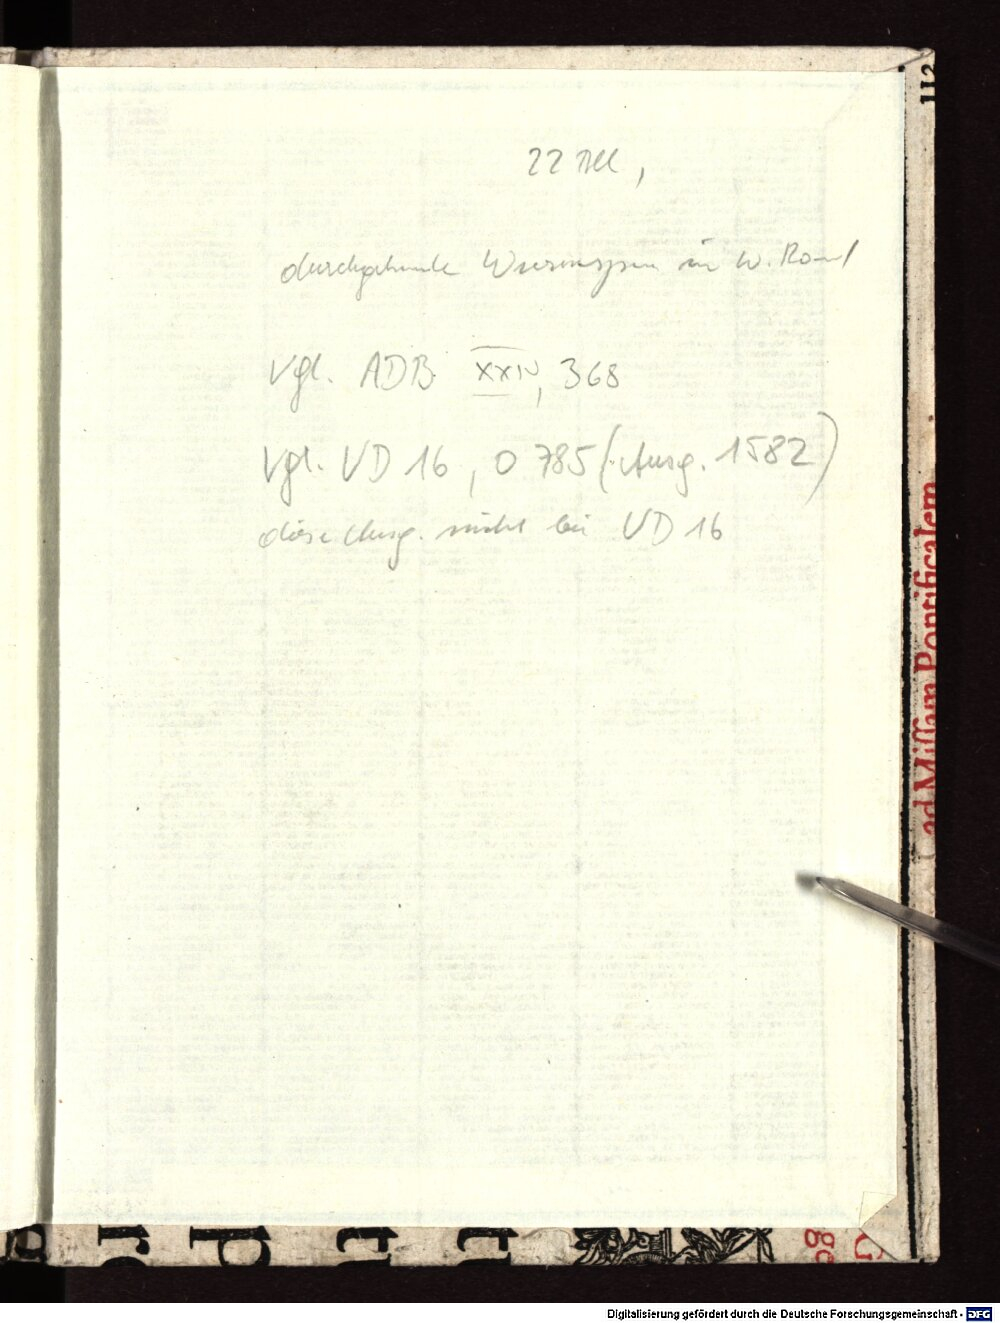 22 Bll,
durchgehende Wurmspuren im w. Rand
vgl. ADB XXIV, 368
vgl. VD 16, O 785 (: Ausg. 1582)
diese Ausg. nicht bei VD 16
112
ad Missam Pontificalem
Digitalisierung gefördert durch die Deutsche Forschungsgemeinschaft - DFG